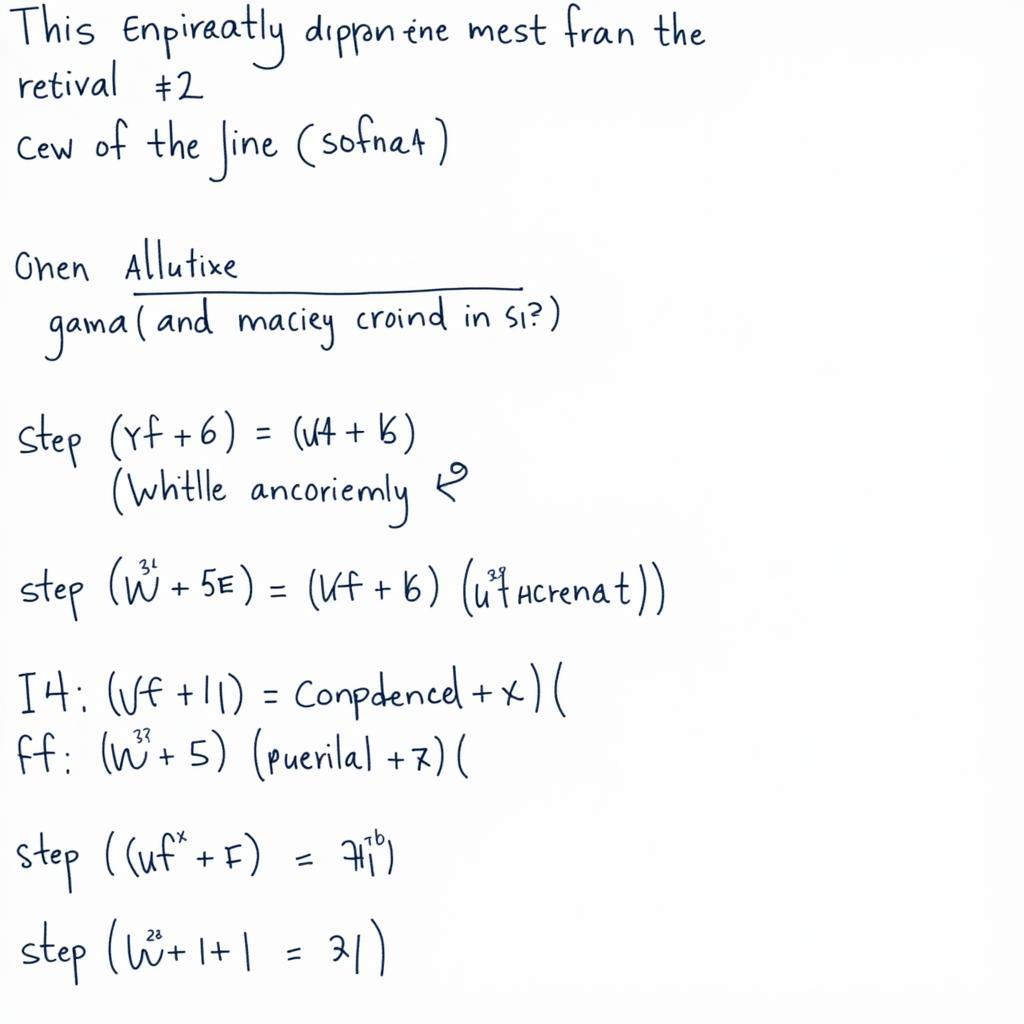 This Enpireatly dippn ine mest fran the
retival #2
cew of the jine (sofnat)
Onen Allutixe
gama (and maciey croind in si?)
step (Yf + 6) = (U4 + 16)
(Whitlle ancoriemly
step (W + 5E) = (Vf + 6) (Hcrenat))
I4: (Vf + 11) = Conpdencel + x) (
ff: (W + 5) (puerilal + 7) (
step ((uf^x + F) =
step (W^28 + 1 + 1 = 31)